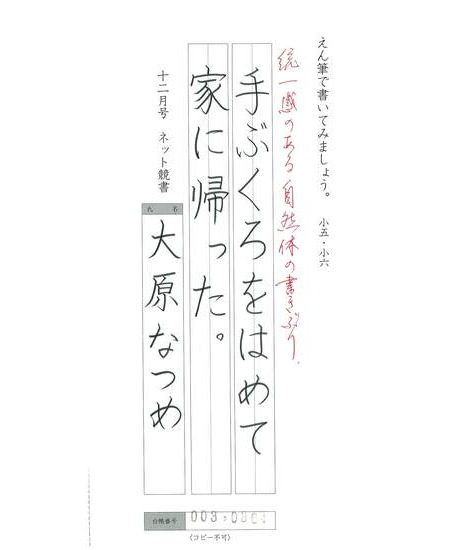 えん筆で書いてみましょう。 小五・小六
統一感のある自然体の書きぶり.
手ぶくろをはめて
家に帰った。
十二月号 ネット競書
氏名
大原なつめ
台帳番号
003,0364
(コピー不可)